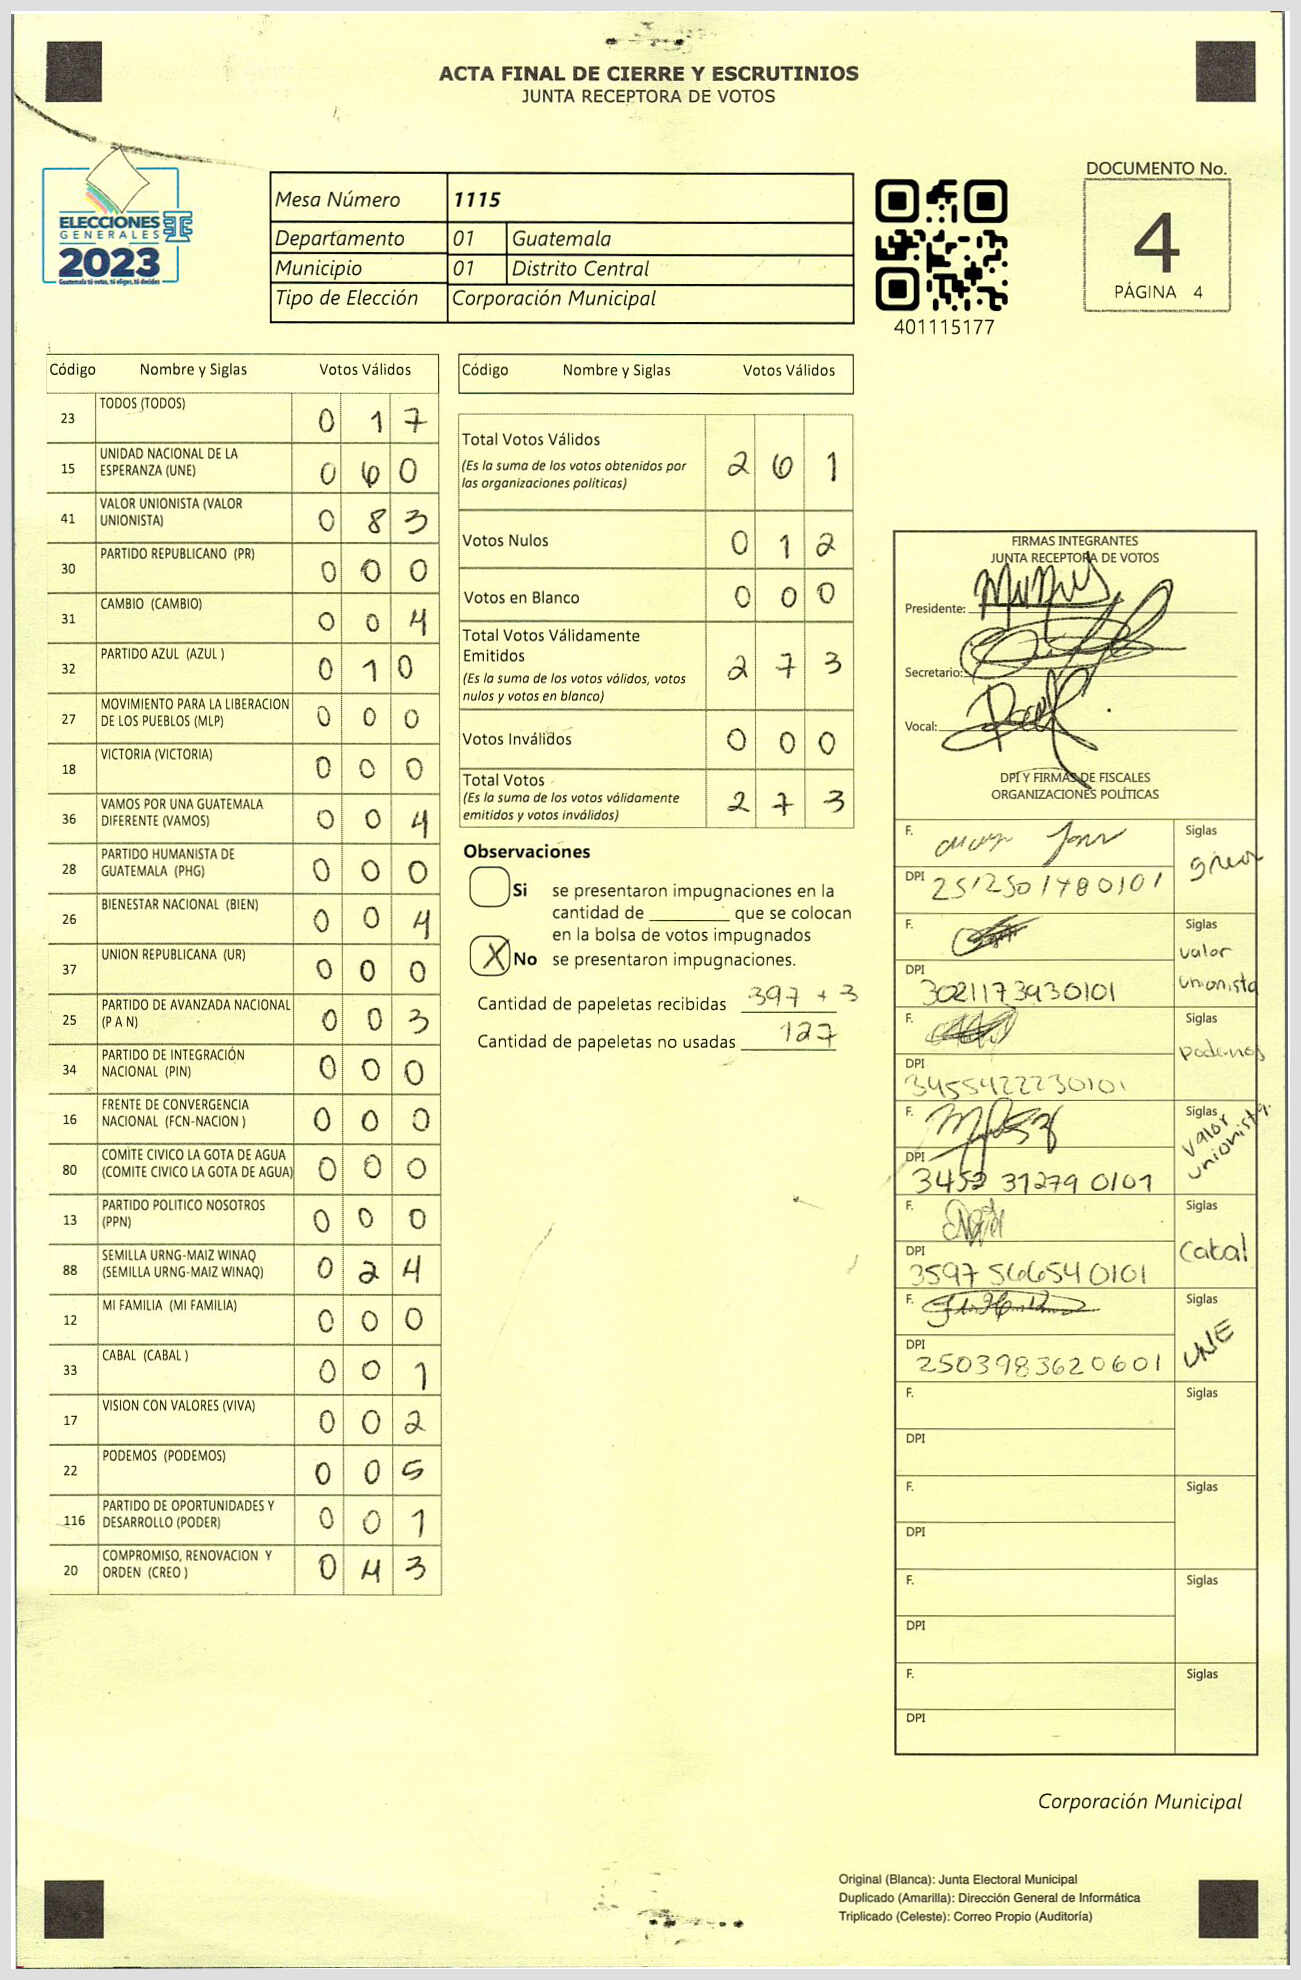 ACTA FINAL DE CIERRE Y ESCRUTINIOS
JUNTA RECEPTORA DE VOTOS
ELECCIONES
GENERALES
2023
Guatemala tú votas, tú eliges, tú decides
Mesa Número 1115
Departamento 01 Guatemala
Municipio 01 Distrito Central
Tipo de Elección Corporación Municipal
401115177
DOCUMENTO No.
4
PÁGINA 4
Código Nombre y Siglas Votos Válidos
23 TODOS (TODOS) 0 1 7
15 UNIDAD NACIONAL DE LA
ESPERANZA (UNE) 0 6 0
41 VALOR UNIONISTA (VALOR
UNIONISTA) 0 8 3
30 PARTIDO REPUBLICANO (PR) 0 0 0
31 CAMBIO (CAMBIO) 0 0 4
32 PARTIDO AZUL (AZUL ) 0 1 0
27 MOVIMIENTO PARA LA LIBERACION
DE LOS PUEBLOS (MLP) 0 0 0
18 VICTORIA (VICTORIA) 0 0 0
36 VAMOS POR UNA GUATEMALA
DIFERENTE (VAMOS) 0 0 4
28 PARTIDO HUMANISTA DE
GUATEMALA (PHG) 0 0 0
26 BIENESTAR NACIONAL (BIEN) 0 0 4
37 UNION REPUBLICANA (UR) 0 0 0
25 PARTIDO DE AVANZADA NACIONAL
(P A N) 0 0 3
34 PARTIDO DE INTEGRACIÓN
NACIONAL (PIN) 0 0 0
16 FRENTE DE CONVERGENCIA
NACIONAL (FCN-NACION ) 0 0 0
80 COMITE CIVICO LA GOTA DE AGUA
(COMITE CIVICO LA GOTA DE AGUA) 0 0 0
13 PARTIDO POLITICO NOSOTROS
(PPN) 0 0 0
88 SEMILLA URNG-MAIZ WINAQ
(SEMILLA URNG-MAIZ WINAQ) 0 2 4
12 MI FAMILIA (MI FAMILIA) 0 0 0
33 CABAL (CABAL ) 0 0 1
17 VISION CON VALORES (VIVA) 0 0 2
22 PODEMOS (PODEMOS) 0 0 5
116 PARTIDO DE OPORTUNIDADES Y
DESARROLLO (PODER) 0 0 1
20 COMPROMISO, RENOVACION Y
ORDEN (CREO ) 0 4 3
Código Nombre y Siglas Votos Válidos
Total Votos Válidos 2 6 1
(Es la suma de los votos obtenidos por
las organizaciones políticas)
Votos Nulos 0 1 2
Votos en Blanco 0 0 0
Total Votos Válidamente
Emitidos 2 7 3
(Es la suma de los votos válidos, votos
nulos y votos en blanco)
Votos Inválidos 0 0 0
Total Votos 2 7 3
(Es la suma de los votos válidamente
emitidos y votos inválidos)
Observaciones
Si se presentaron impugnaciones en la
cantidad de ________ que se colocan
en la bolsa de votos impugnados
X No se presentaron impugnaciones.
Cantidad de papeletas recibidas 397 + 3
Cantidad de papeletas no usadas 127
FIRMAS INTEGRANTES
JUNTA RECEPTORA DE VOTOS
Presidente:
Secretario:
Vocal:
DPI Y FIRMAS DE FISCALES
ORGANIZACIONES POLÍTICAS
F. Siglas
DPI 2512501780101
F. Siglas valor
DPI 3021173930101 unionista
F. Siglas podemos
DPI 3455422230101
F. Siglas valor
DPI 3452 31279 0101 unionista
F. Siglas
DPI 3597 56654 0101 Cabal
F. Siglas
DPI 2503983620601 UNE
F. Siglas
DPI
F. Siglas
DPI
F. Siglas
DPI
F. Siglas
DPI
Corporación Municipal
Original (Blanca): Junta Electoral Municipal
Duplicado (Amarilla): Dirección General de Informática
Triplicado (Celeste): Correo Propio (Auditoría)